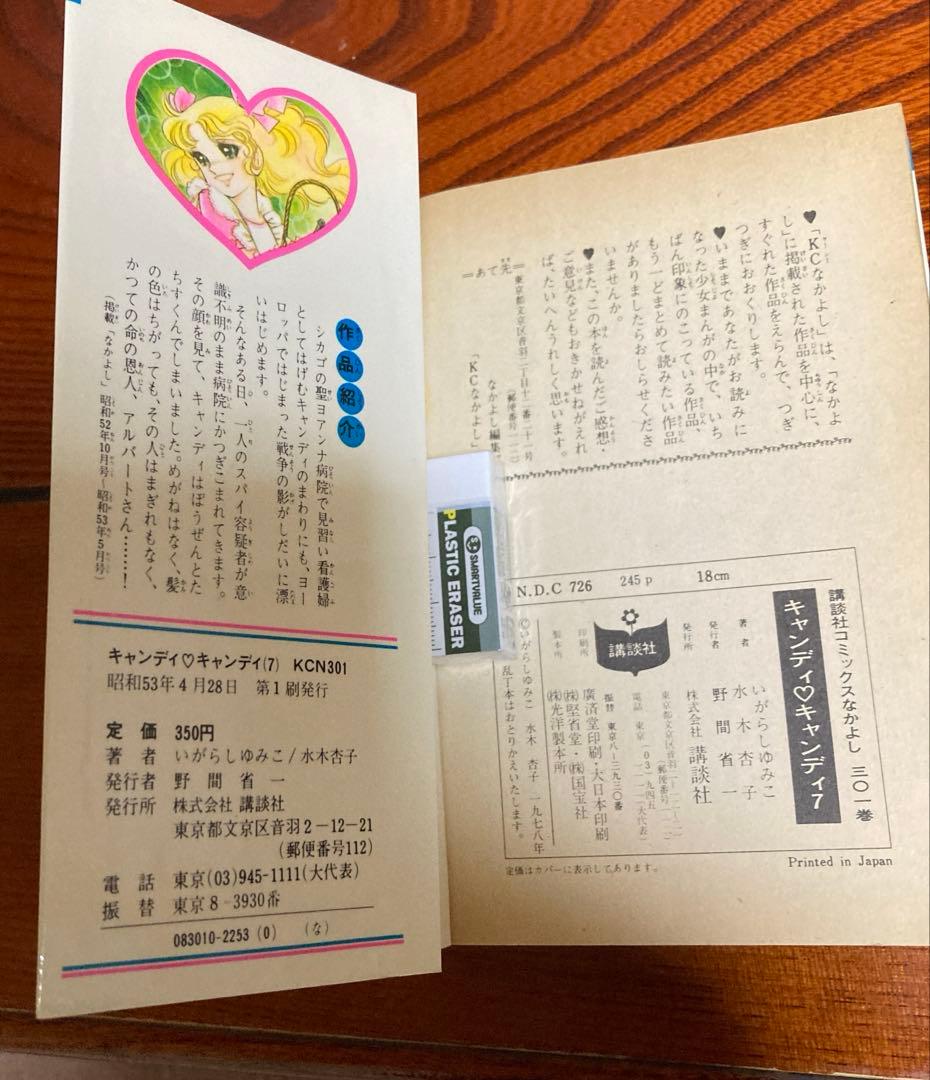 作品紹介
シカゴの聖ヨアンナ病院で見習い看護婦
としてはげむキャンディのまわりにも、ヨー
ロッパではじまった戦争の影がしだいに漂
いはじめます。
そんなある日、一人のスパイ容疑者が意
識不明のまま病院にかつぎこまれてきます。
その顔を見て、キャンディはぼうぜんとた
ちすくんでしまいました。めがねはなく、髪
の色はちがっても、その人はまぎれもなく、
かつての命の恩人、アルバートさん……!
(掲載「なかよし」昭和52年10月号~昭和53年5月号)
キャンディ♡キャンディ(7) KCN301
昭和53年4月28日 第1刷発行
定価 350円
著者 いがらしゆみこ/水木杏子
発行者 野間省一
発行所 株式会社 講談社
東京都文京区音羽2-12-21
(郵便番号112)
電話 東京(03)945-1111(大代表)
振替 東京8-3930番
083010-2253 (0) (な)
♥「KCなかよし」は、「なかよ
し」に掲載された作品を中心に、
すぐれた作品をえらんで、つぎ
つぎにおおくりします。
♥いままであなたがお読みに
なった少女まんがの中で、いち
ばん印象にのこっている作品、
もう一どまとめて読みたい作品
がありましたらおしらせくださ
いませんか。
♥また、この本を読んだご感想・
ご意見などもおきかせねがえれ
ば、たいへんうれしく思います。
=あて先=
東京都文京区音羽二丁目十二番二十一号
(郵便番号一一二)
なかよし編集
「KCなかよし」
SMARTVALUE
PLASTIC ERASER
N.D.C 726 245p 18cm
講談社コミックスなかよし 三〇一巻
キャンディ♡キャンディ7
著者 いがらしゆみこ
水木杏子
発行者 野間省一
発行所 株式会社 講談社
東京都文京区音羽二-一二-二一
(郵便番号一一二)
電話 東京(〇3)九四五
一一一一(大代表)
振替 東京八-三九三〇番
講談社
印刷所 廣済堂印刷・大日本印刷
㈱堅省堂・㈱国宝社
製本所 ㈱光洋製本所
©いがらしゆみこ 水木杏子 一九七八年
乱丁本はおとりかえいたします。
定価はカバーに表示してあります。
Printed in Japan